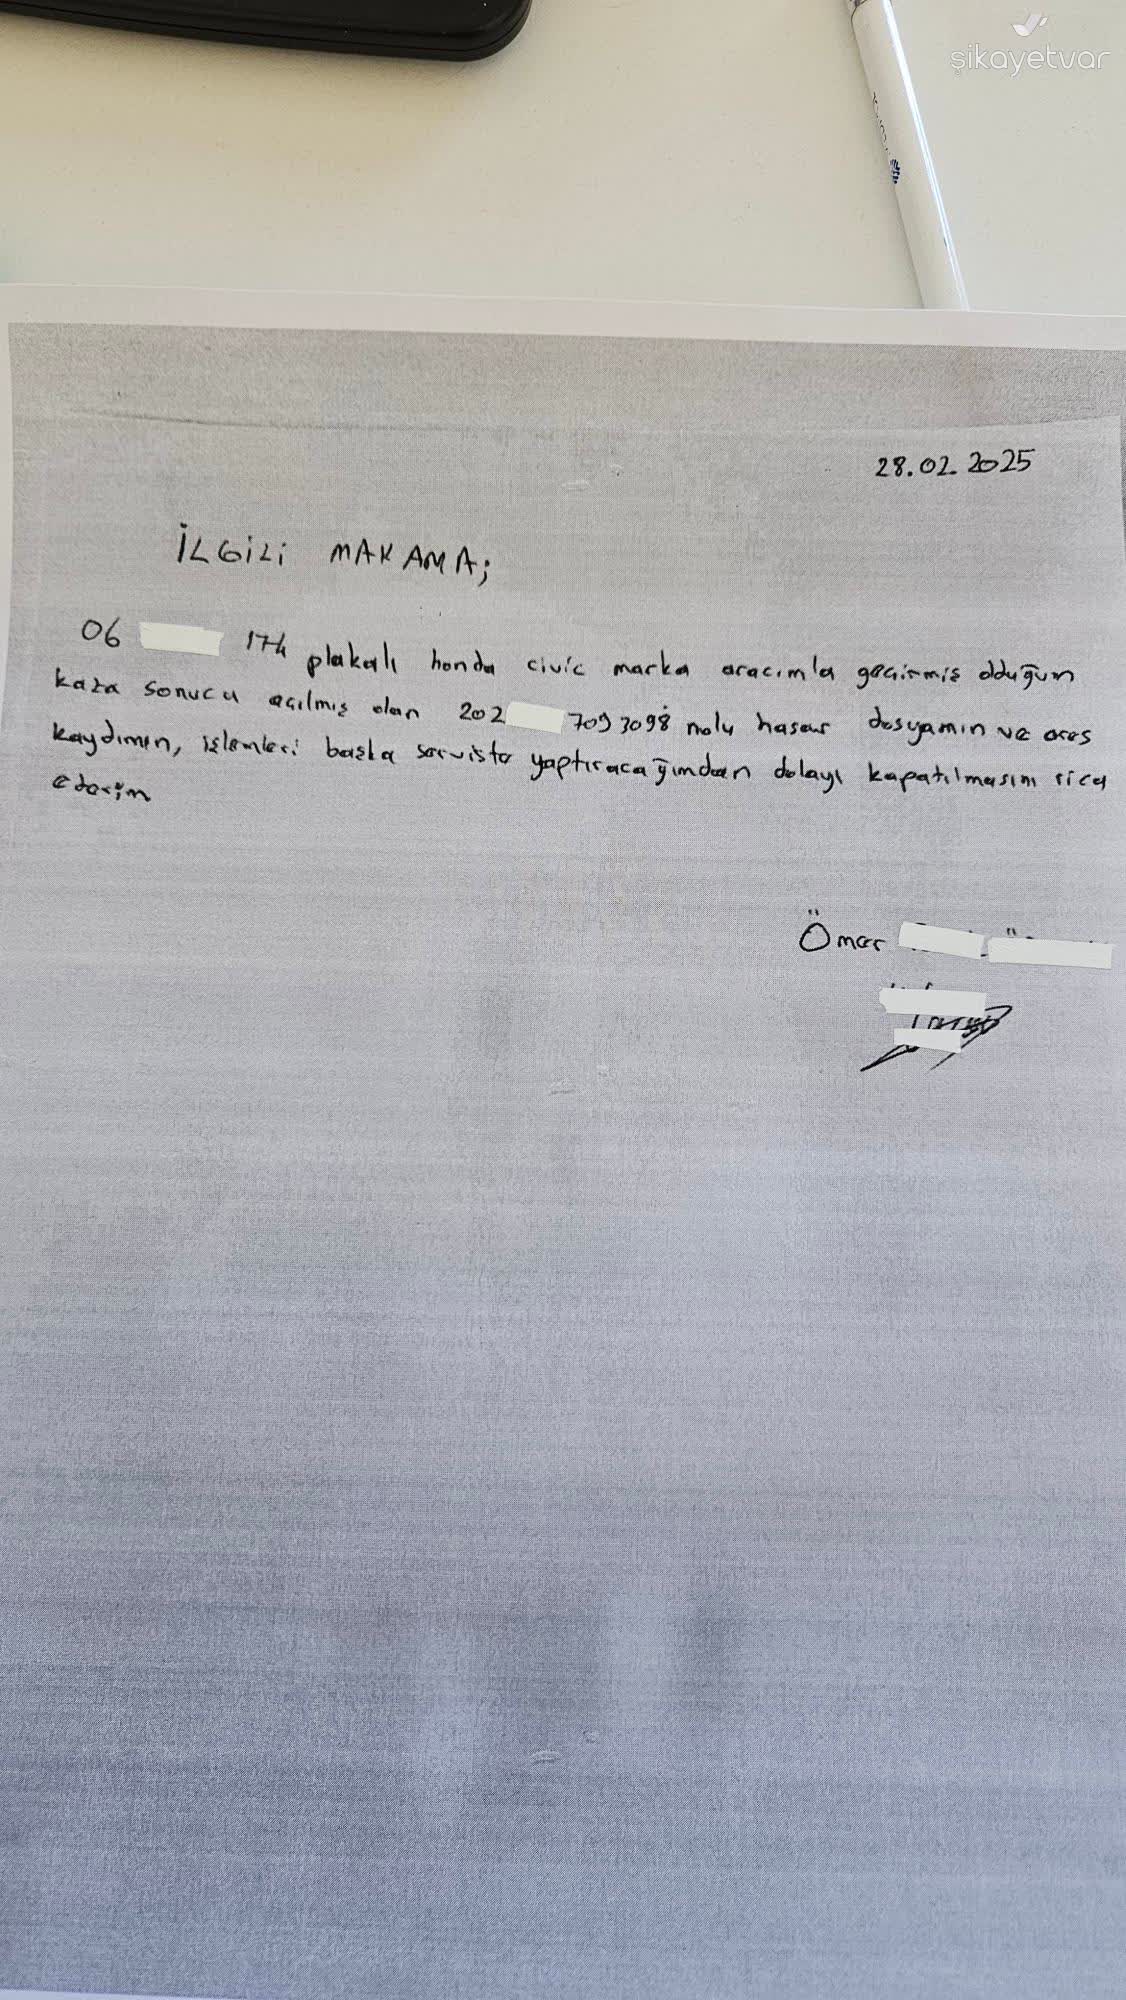 şikayetvar
28.02.2025
İLGİLİ MAKAMA;
06 174 plakalı honda civic marka aracımla geçirmiş olduğum
kaza sonucu açılmış olan 202 7093098 nolu hasar dosyamın ve ares
kaydımın, işlemleri başka serviste yaptıracağımdan dolayı kapatılmasını rica
ederim
Ömer